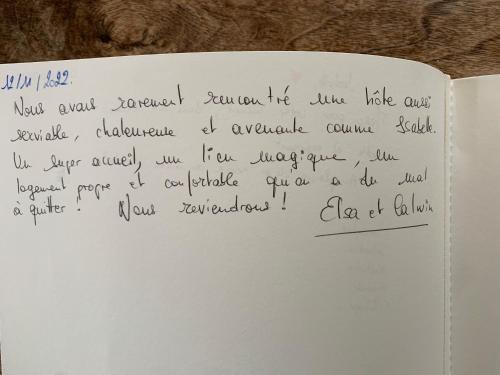 12/11/2022.
Nous avons rarement rencontré une hôte aussi
serviable, chaleureuse et avenante comme Isabelle.
Un super accueil, un lieu magique, un
logement propre et confortable qu'on a du mal
à quitter ! Nous reviendrons ! Elsa et Calwin